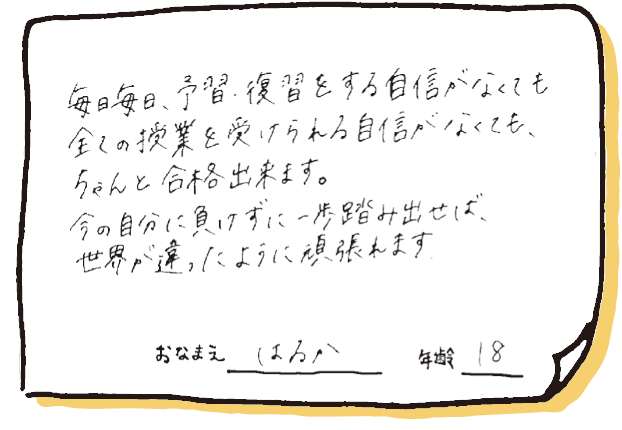 毎日毎日、予習・復習をする自信がなくても
全ての授業を受けられる自信がなくても、
ちゃんと合格出来ます。
今の自分に負けずに一歩踏み出せば、
世界が違ったように頑張れます
おなまえ はるか 年齢 18